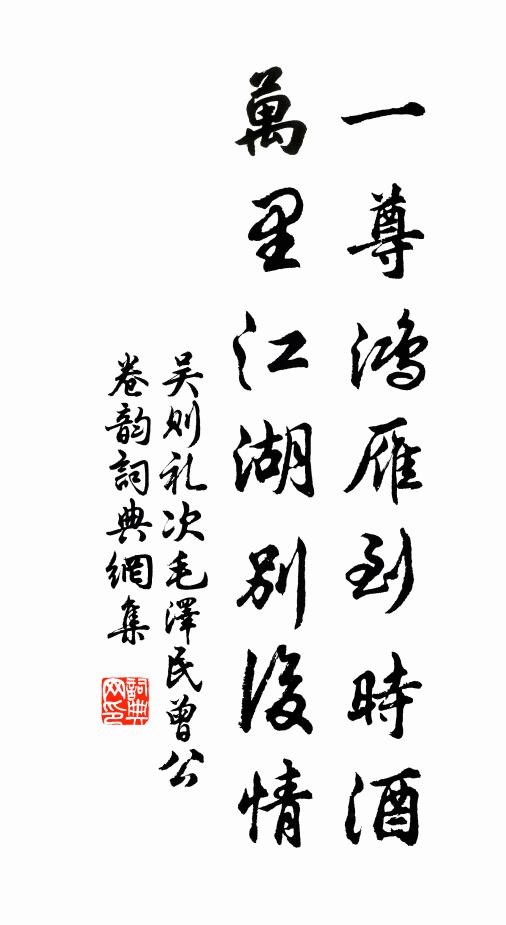 一尊鴻雁到時酒
萬里江湖別後情
吴则礼次毛澤民曾公
卷韵詞典網集
詞典
网印